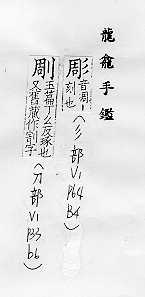 龍龕手鑑
彫 音凋
刻也 (彡部 V1 P64 B4)
剮 玉篇丁幺反琢也
又舊藏作割字 (刀部 V1 P33 b6)